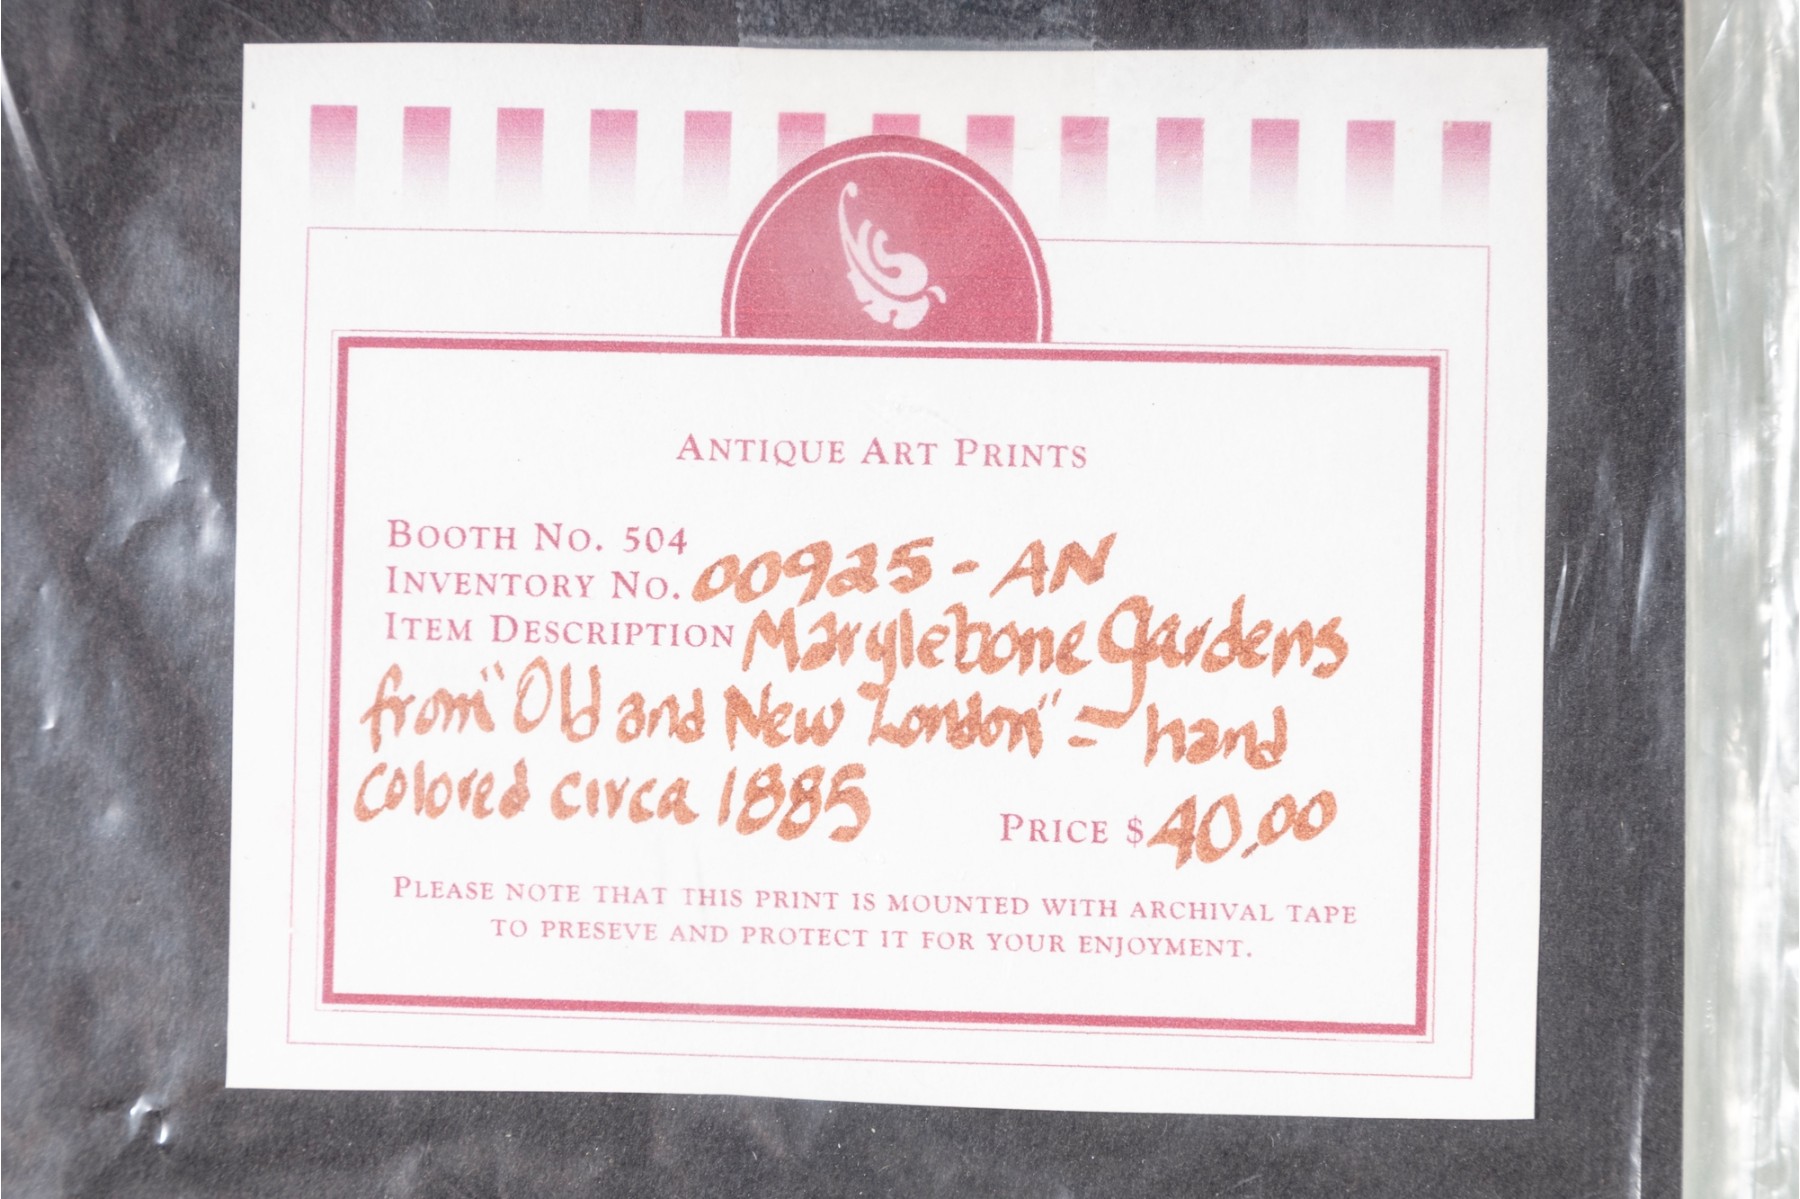 Antique Art Prints
Booth No. 504
Inventory No. 00925 - AN
Item Description Marylebone Gardens
from "Old and New London" - hand
colored circa 1885 Price $40.00
Please note that this print is mounted with archival tape
to preseve and protect it for your enjoyment.